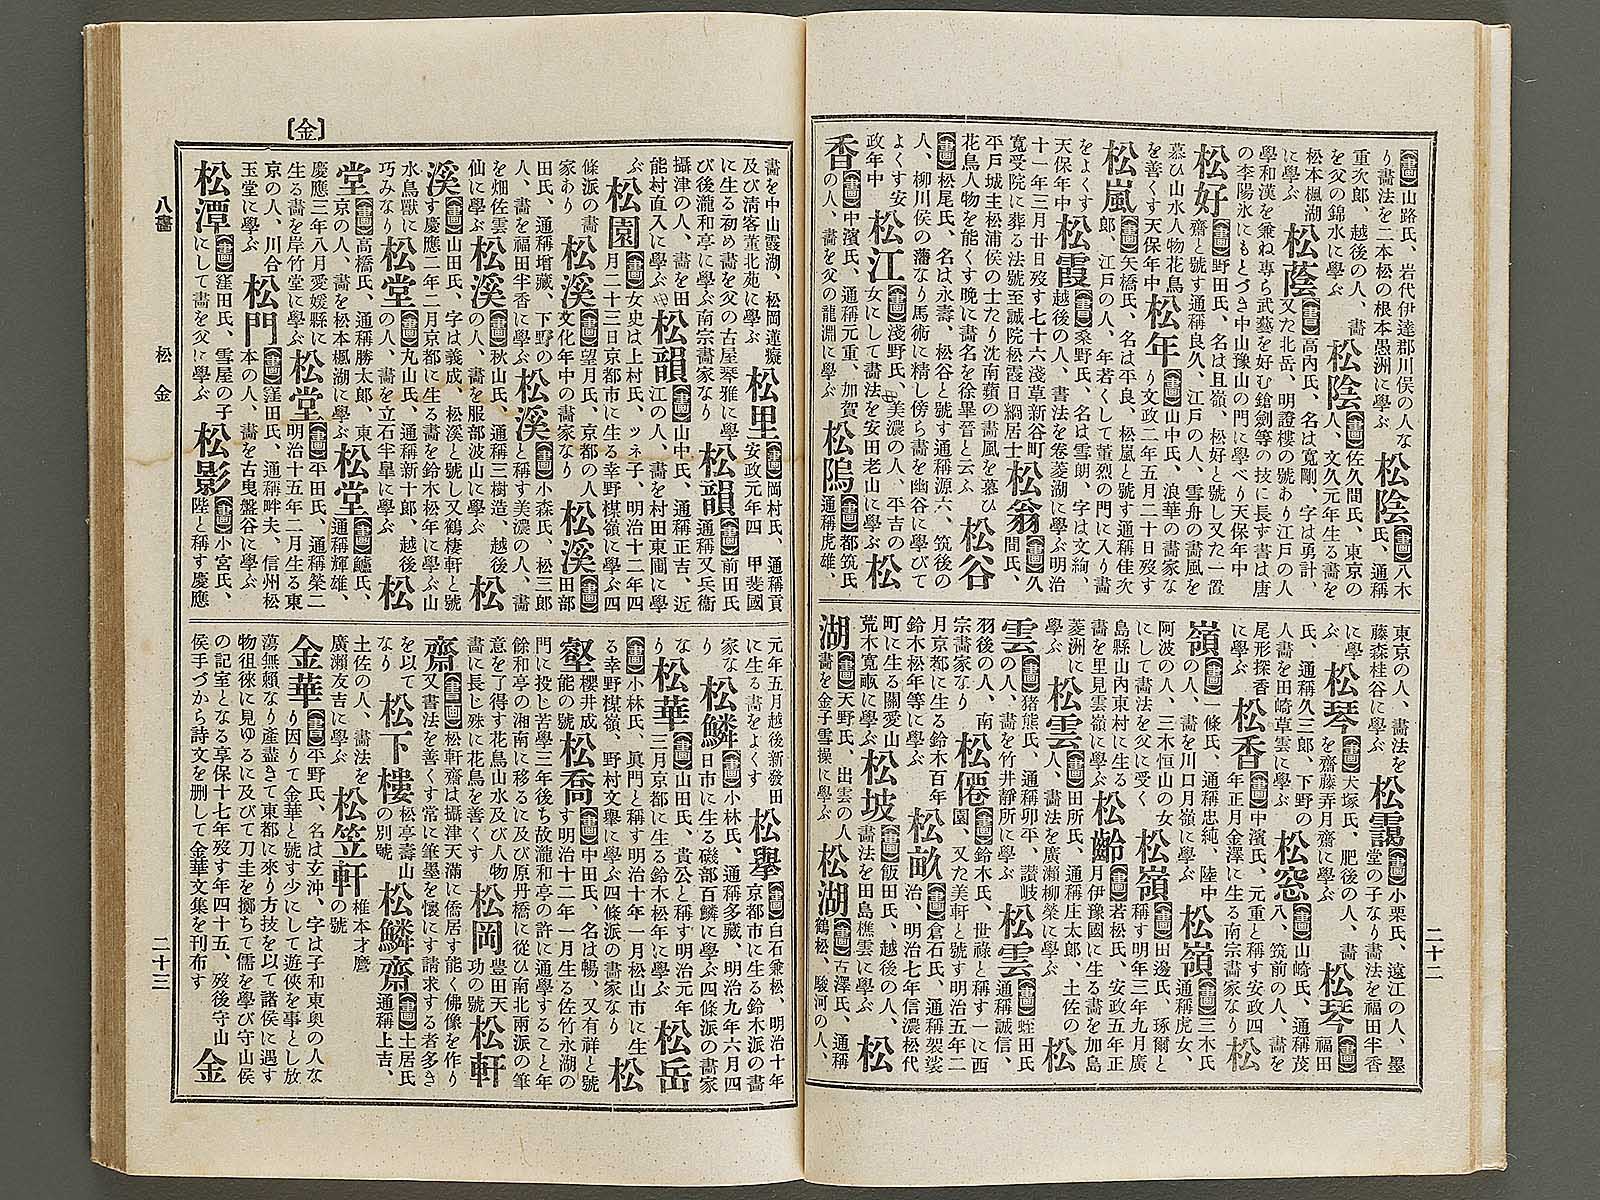 【畫】山路氏、岩代伊達郡川俣の人な
り畫法を二本松の根本愚洲に學ぶ 松陰【畫】八木氏、通稱
重次郎、越後の人、畫を父の錦水に學ぶ 松陰【畫】佐久間氏、東京の人、文久元年生る畫を
松本楓湖に學ぶ 松蔭【畫】高內氏、名は寬剛、字は勇計、又た北岳、明證樓の號あり江戶の人
學和漢を兼ね專ら武藝を好む鎗劍等の技に長ず書は唐
の李陽氷にもとづき中山豫山の門に學べり天保年中
松好【畫】野田氏、名は且嶺、松好と號し又た一置齋と號す通稱良久、江戶の人、雪舟の畫風を
慕ひ山水人物花鳥を善くす天保年中 松年【畫】山中氏、浪華の畫家なり文政二年五月二十日歿す
松嵐【畫】矢橋氏、名は平良、松嵐と號す通稱佳次郎、江戶の人、年若くして董烈の門に入り畫
をよくす天保年中 松霞【書】桑野氏、名は雪朗、字は文絢、越後の人、書法を卷菱湖に學ぶ明治
十一年三月廿日歿す七十六淺草新谷町 松翁【畫】久間氏、
寬受院に葬る法號至誠院松霞日綱居士
平戶城主松浦侯の士たり沈南蘋の畫風を慕ひ
花鳥人物を能くす晚に畫名を徐畢晉と云ふ 松谷
【畫】松尾氏、名は永壽、松谷と號す通稱源六、筑後の
人、柳川侯の藩なり馬術に精し傍ら畫を幽谷に學びて
よくす安政年中 松江【畫】淺野氏、美濃の人、平吉の女にして畫法を安田老山に學ぶ 松
香【畫】中濱氏、通稱元重、加賀の人、畫を父の龍淵に學ぶ 松隖【畫】都筑氏、通稱虎雄、
東京の人、畫法を藤森桂谷に學ぶ 松靄【畫】小栗氏、遠江の人、墨堂の子なり畫法を福田半香
に學ぶ 松琴【畫】大塚氏、肥後の人、畫を齋藤弄月齋に學ぶ 松琴【畫】福田
氏、通稱久三郎、下野の人畫を田崎草雲に學ぶ 松窓【畫】山崎氏、通稱茂八、筑前の人、畫を
尾形探香に學ぶ 松香【畫】中濱氏、元重と稱す安政四年正月金澤に生る南宗畫家なり 松
嶺【畫】一條氏、通稱忠純、陸中の人、畫を川口月嶺に學ぶ 松嶺【畫】三木氏通稱虎女、
阿波の人、三木恒山の女にして畫法を父に受く 松嶺【畫】田邊氏、琢爾と稱す明年三年九月廣
島縣山內東村に生る畫を里見雲嶺に學ぶ 松齡【畫】若松氏、安政五年正月伊豫國に生る畫を加島
菱洲に學ぶ 松雲【畫】田所氏、通稱庄太郎、土佐の人、畫法を廣瀨柳榮に學ぶ 松
雲【畫】猪熊氏、通稱卯平、讃岐の人、畫を竹井靜所に學ぶ 松雲【畫】蛭田氏通稱誠信、
羽後の人、南宗畫家なり 松僊【畫】鈴木氏、世祿と稱す一に西園、又た美軒と號す明治五年二
月京都に生る鈴木百年鈴木松年等に學ぶ 松畝【畫】倉石氏、通稱袈裟治、明治七年信濃松代
町に生る關愛山荒木寬畝に學ぶ 松坡【畫】飯田氏、越後の人、畫法を田島樵雲に學ぶ 松
湖【畫】天野氏、出雲の人畫を金子雪操に學ぶ 松湖【畫】古澤氏、通稱鶴松、駿河の人、
二十二
【金】
畫を中山霞湖、松岡蓮癡及び淸客董北苑に學ぶ 松里【畫】岡村氏、通稱貢安政元年四 甲斐國
に生る初め畫を父の古屋琴雅に學び後瀧和亭に學ぶ南宗畫家なり 松韻【畫】前田氏通稱又兵衞
攝津の人、畫を田能村直入に學ぶ 松韻【畫】山中氏、通稱正吉、近江の人、畫を村田東圃に學
ぶ 松園【畫】女史は上村氏、ツネ子、明治十二年四月二十三日京都市に生る幸野楳嶺に學ぶ四
條派の畫家あり 松溪【畫】望月氏、京都の人文化年中の畫家なり 松溪【畫】田部
田氏、通稱增藏、下野の人、畫を福田半香に學ぶ 松溪【畫】小森氏、松三郎と稱す美濃の人、畫
を畑佐雲仙に學ぶ 松溪【畫】秋山氏、通稱三樹造、越後の人、畫を服部波山に學ぶ 松
溪【畫】山田氏、字は義成、松溪と號し又鶴棲軒と號す慶應二年二月京都に生る畫を鈴木松年に學ぶ山
水鳥獸に巧みなり 松堂【畫】丸山氏、通稱新十郎、越後の人、畫を立石半皐に學ぶ 松
堂【畫】高橋氏、通稱勝太郎、東京の人、畫を松本楓湖に學ぶ 松堂【畫】鱸氏、通稱輝雄、
慶應三年八月愛媛縣に生る畫を岸竹堂に學ぶ 松堂【畫】平田氏、通稱榮二明治十五年二月生る東
京の人、川合玉堂に學ぶ 松門【畫】窪田氏、通稱畔夫、信州松本の人、畫を古曳盤谷に學ぶ
松潭【畫】窪田氏、雪屋の子にして畫を父に學ぶ 松影【畫】小宮氏、陛と稱す慶應
元年五月越後新發田に生る畫をよくす 松擧【畫】白石乘松、明治十年京都市に生る鈴木派の畫
家なり 松鱗【畫】小林氏、通稱多藏、明治九年六月四日市に生る磯部百鱗に學ぶ四條派の畫家
なり 松華【畫】山田氏、貴公と稱す明治元年三月京都に生る鈴木松年に學ぶ 松岳
【畫】小林氏、眞門と稱す明治十年一月松山市に生
る幸野楳嶺、野村文擧に學ぶ四條派の畫家なり 松
壑櫻井成能の號 松喬【畫】中田氏、名は暢、又有祥と號す明治十二年一月生る佐竹永湖の
門に投じ苦學三年後ち故瀧和亭の許に通學すること年
餘和亭の湘南に移るに及び原丹橋に從ひ南北兩派の筆
意を了得す花鳥山水及び人物畫に長じ殊に花鳥を善くす 松岡豐田天功の號 松軒
齋【書畫】松軒齋は攝津天滿に僑居す能く佛像を作り又書法を善くす常に筆墨を懷にす請求する者多き
を以てなり 松下樓松亭壽山の別號 松鱗齋【畫】土居氏通稱上吉、
土佐の人、畫法を廣瀨友吉に學ぶ 松笠軒椎本才麿の號
金華【書】平野氏、名は玄沖、字は子和東奧の人なり因りて金華と號す少にして遊俠を事とし放
蕩無賴なり產盡きて東都に來り方技を以て諸侯に遇す
物徂徠に見ゆるに及びて刀圭を擲ちて儒を學び守山侯
の記室となる享保十七年歿す年四十五、歿後守山
侯手づから詩文を刪して金華文集を刊布す 金
八畫 松 金
二十三